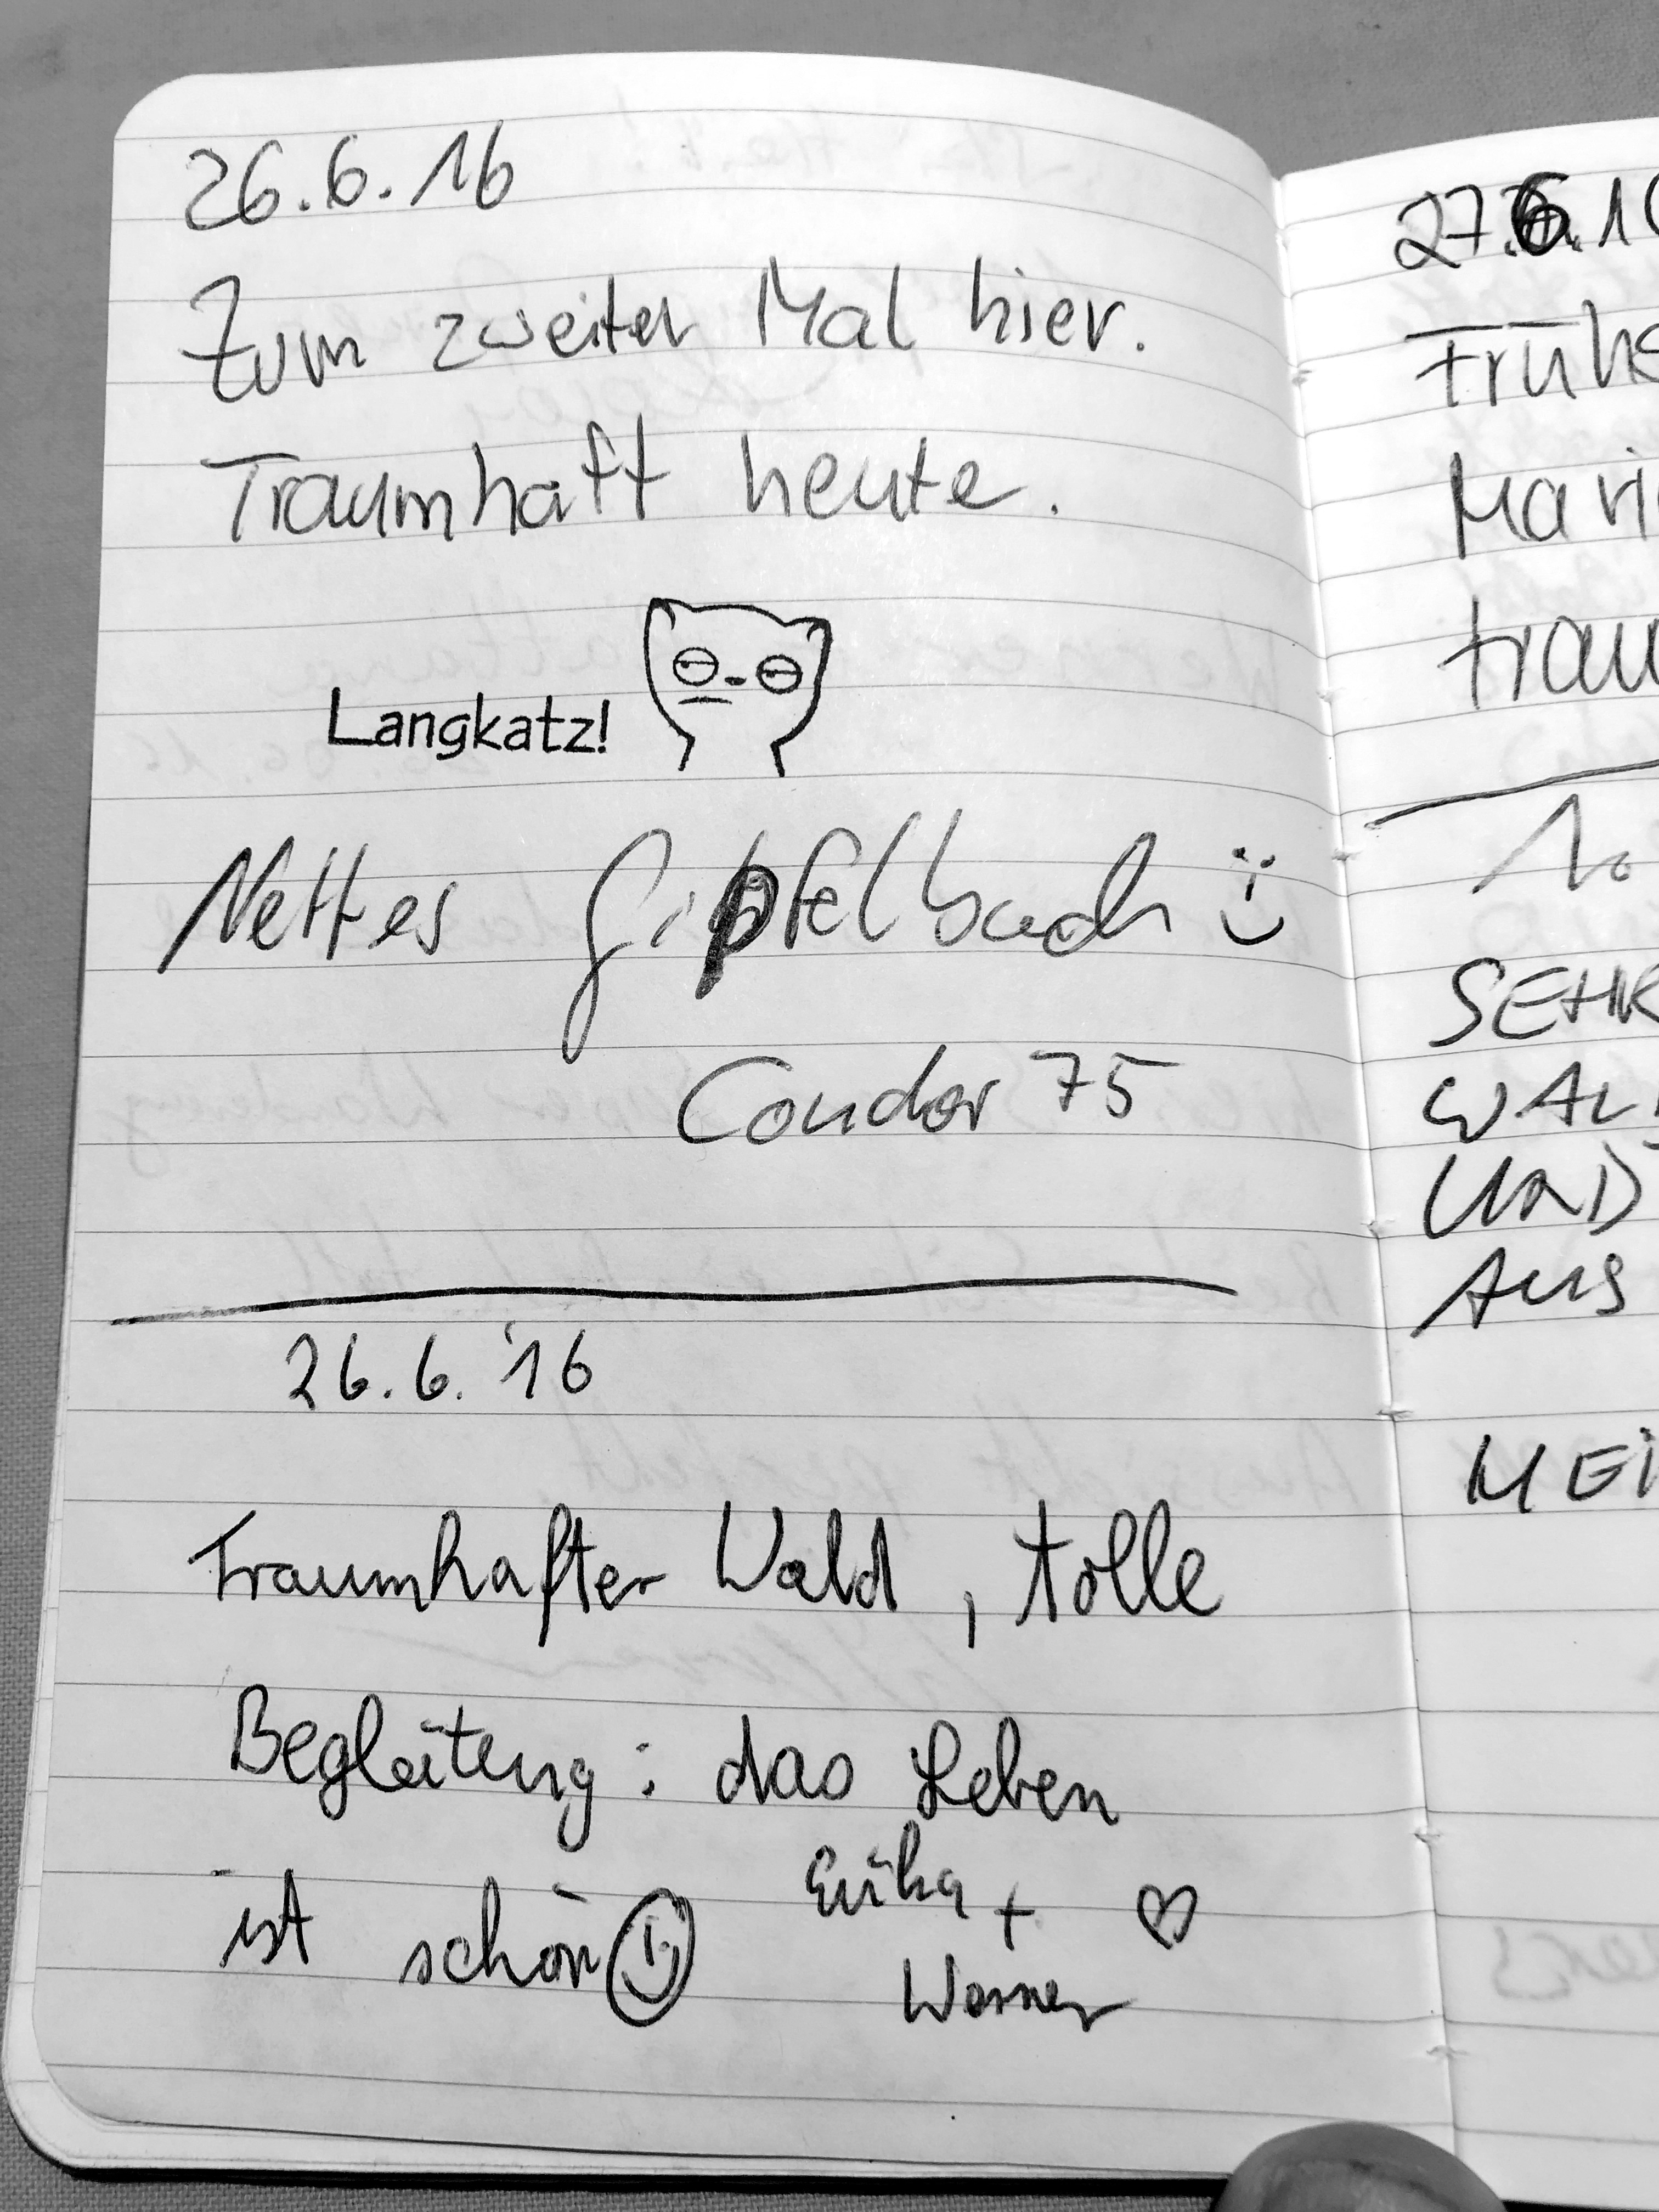 26.6.16
Zum zweiten Mal hier.
Traumhaft heute.
Langkatz!
Nettes Gipfelbuch
Condor 75
26.6.'16
Traumhafter Wald, tolle
Begleitung: das Leben
ist schön
Erika +
Werner
27.6.1
Frühs
Mari
trau
SEHR
WAL
UND
AUS
MEI